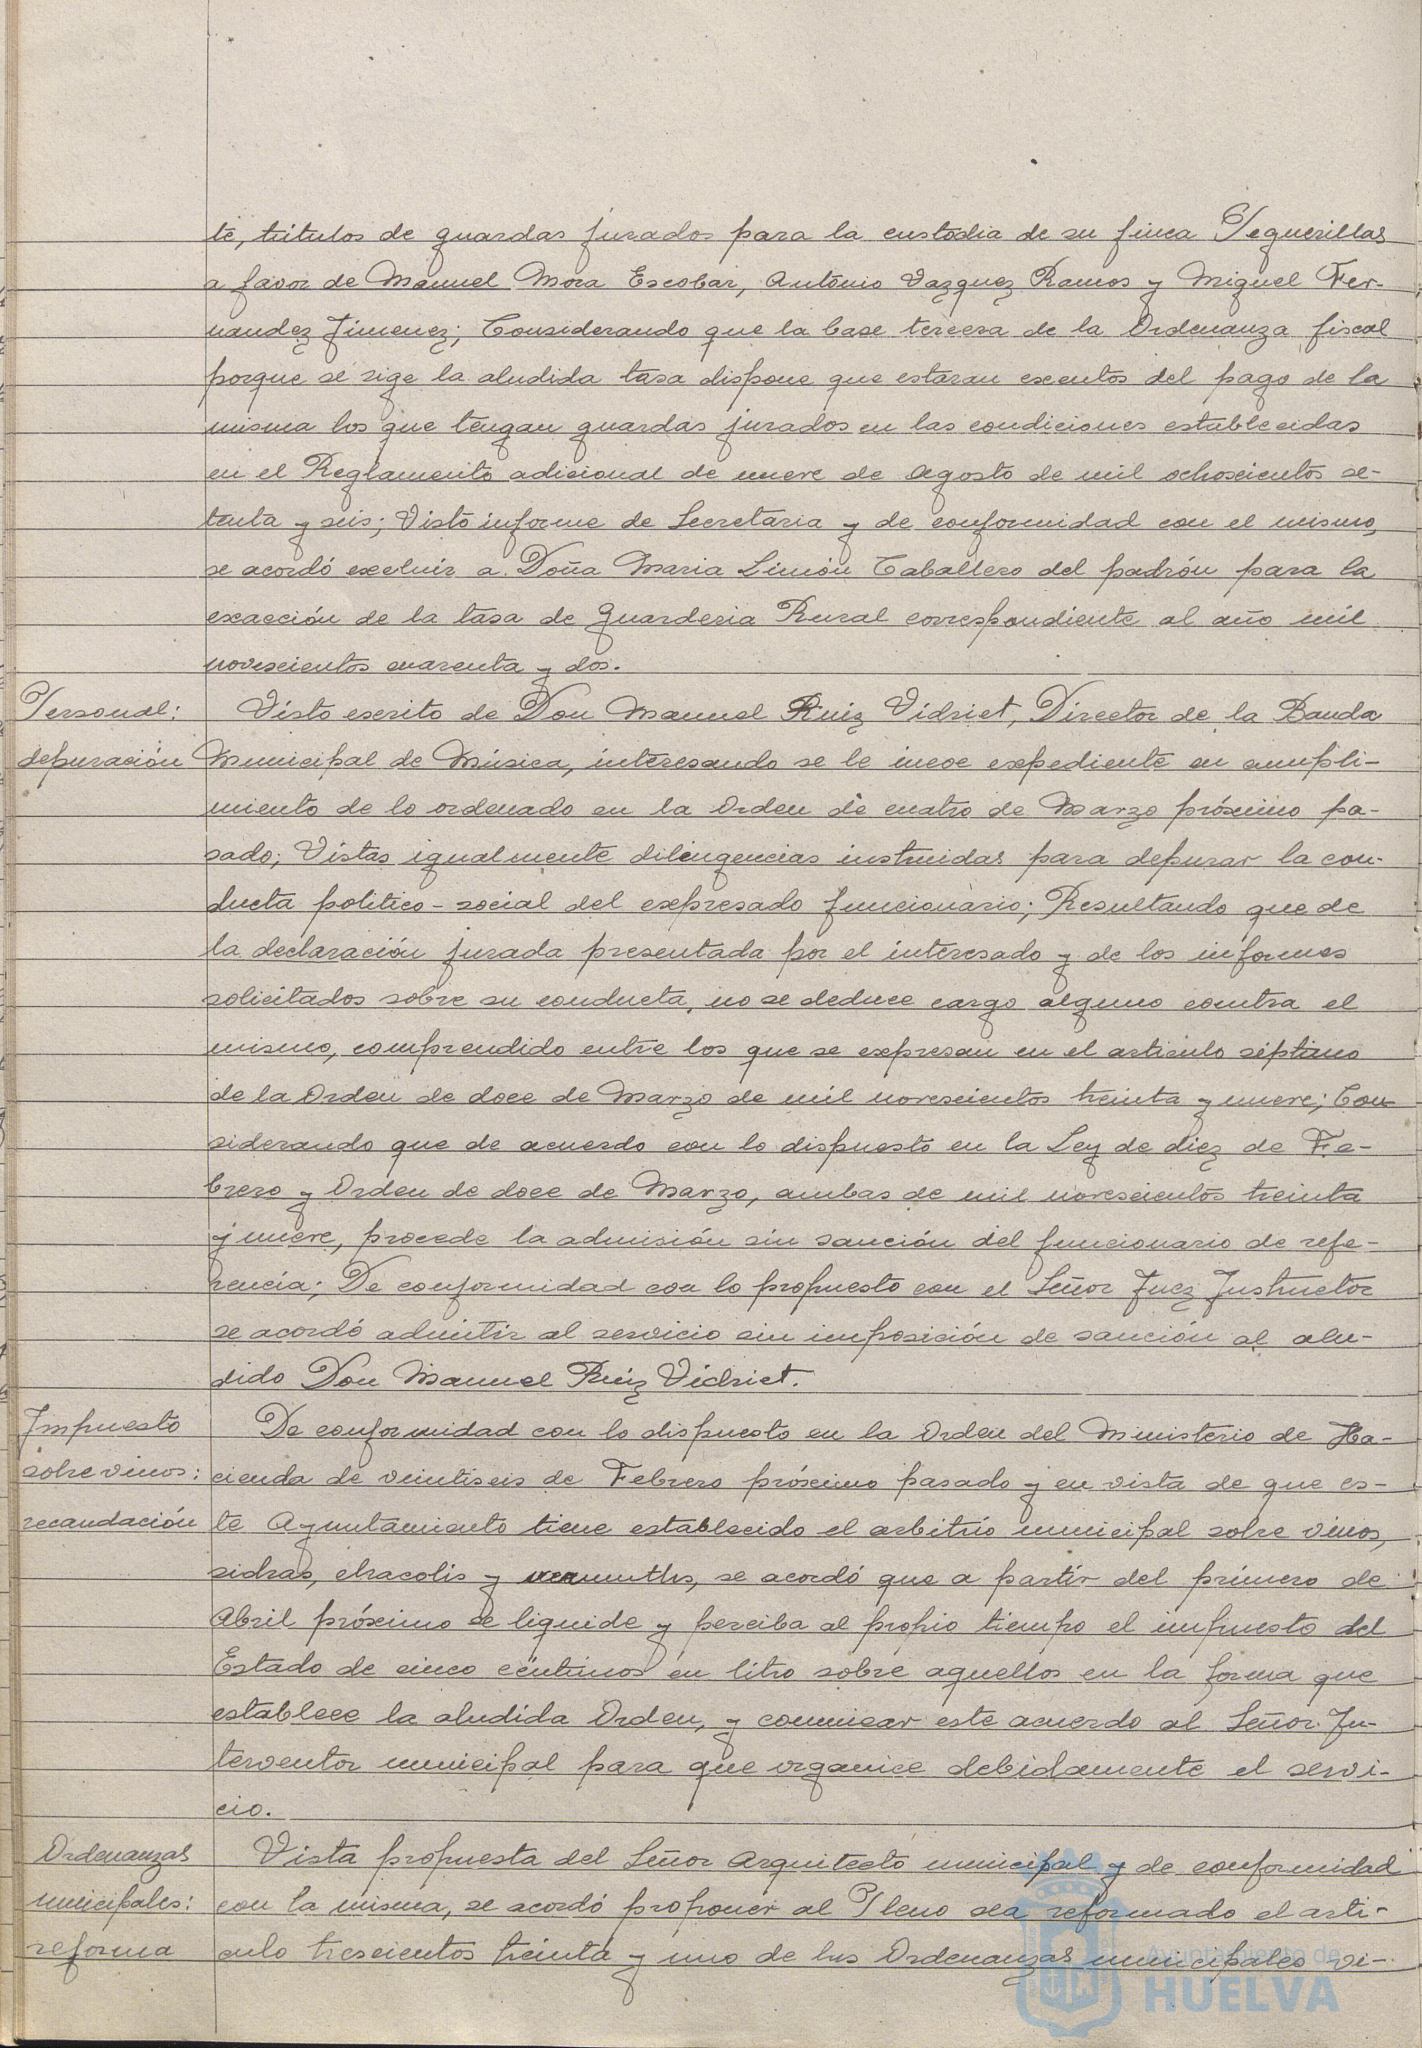 te, títulos de guardas jurados para la custodia de su finca Peguerillas
a favor de Manuel Mora Escobar, Antonio Vazquez Ramos y Miguel Fer-
nandez Jimenez; Considerando que la base tercera de la Ordenanza fiscal
porque se rige la aludida tasa dispone que estaran exentos del pago de la
misma los que tengan guardas jurados en las condiciones establecidas
en el Reglamento adicional de nueve de Agosto de mil ochoscientos se-
tenta y seis; Visto informe de Secretaria y de conformidad con el mismo,
se acordó excluir a Doña Maria Limón Caballero del padrón para la
exacción de la tasa de Guarderia Rural correspondiente al año mil
novescientos cuarenta y dos.
Personal:
depuración
Visto escrito de Don Manuel Ruiz Vidriet, Director de la Banda
Municipal de Música, interesando se le incoe expediente en cumpli-
miento de lo ordenado en la Orden de cuatro de Marzo próximo pa-
sado; Vistas igualmente dilingencias instruidas para depurar la con-
ducta politico-social del expresado funcionario; Resultando que de
la declaración jurada presentada por el interesado y de los informes
solicitados sobre su conducta, no se deduce cargo alguno contra el
mismo, comprendido entre los que se expresan en el articulo séptimo
de la Orden de doce de Marzo de mil novescientos treinta y nueve; Con-
siderando que de acuerdo con lo dispuesto en la Ley de diez de Fe-
brero y Orden de doce de Marzo, ambas de mil novescientos treinta
y nueve, procede la admisión sin sanción del funcionario de refe-
rencia; De conformidad con lo propuesto con el Señor Juez Instructor
se acordó admitir al servicio sin imposición de sanción al alu-
dido Don Manuel Ruiz Vidriet.
Impuesto
sobre vinos:
recaudación
De conformidad con lo dispuesto en la Orden del Ministerio de Ha-
cienda de veintiseis de Febrero próximo pasado y en vista de que es-
te Ayuntamiento tiene establecido el arbitrio municipal sobre vinos,
sidras, chacolis y vermuths, se acordó que a partir del primero de
Abril próximo se liquide y perciba al propio tiempo el impuesto del
Estado de cinco céntimos en litro sobre aquellos en la forma que
establece la aludida Orden, y comunicar este acuerdo al Señor In-
terventor municipal para que organice debidamente el servi-
cio.
Ordenanzas
municipales:
reforma
Vista propuesta del Señor Arquitecto municipal y de conformidad
con la misma, se acordó proponer al Pleno sea reformado el arti-
culo trescientos treinta y uno de las Ordenanzas municipales vi-
Ayuntamiento de
HUELVA